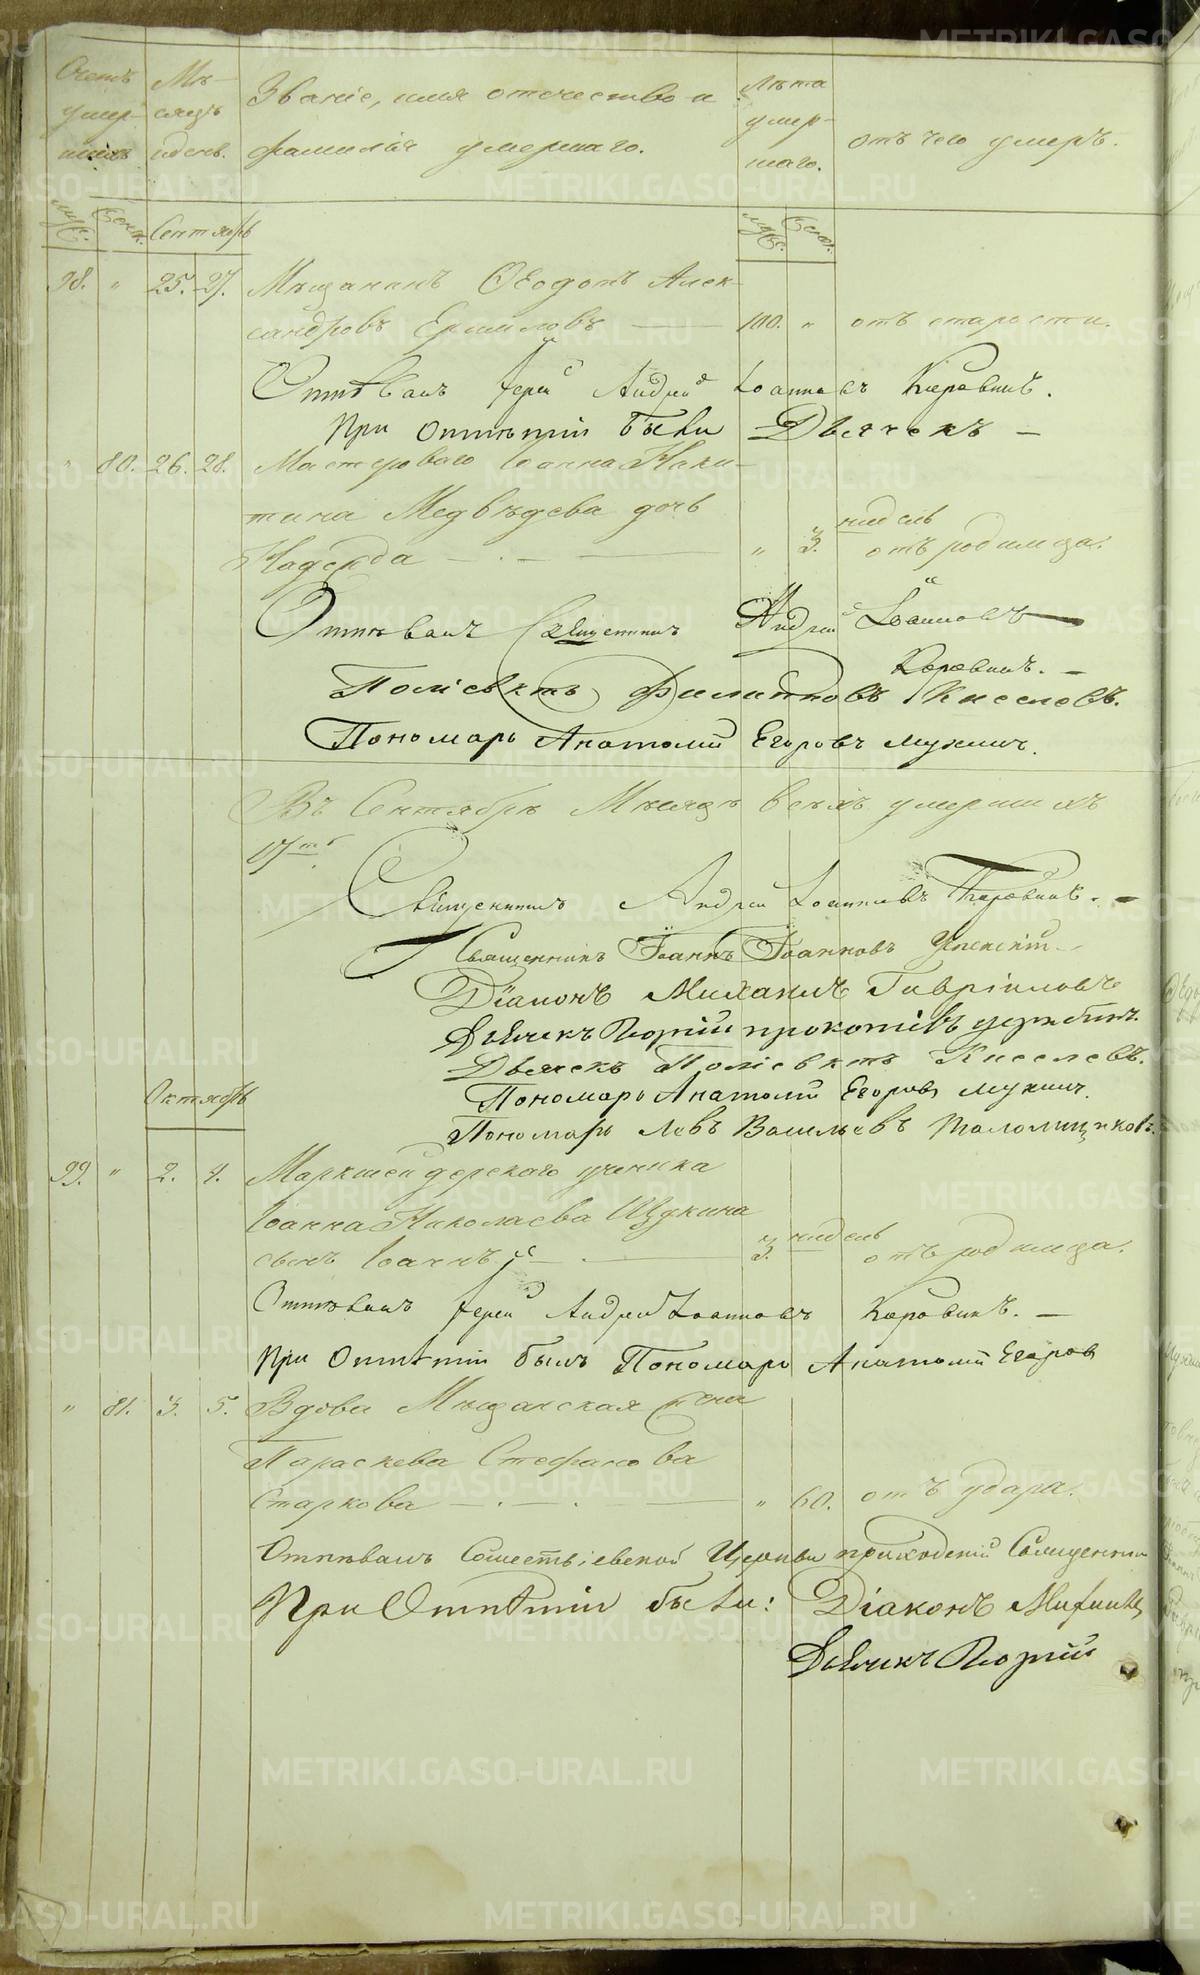 Счетъ умер-шихъ
Мѣ-сяцъ и день.
Званіе, имя отчество и фамилія умершаго.
Лѣта умер-шаго.
отъ чего умеръ.
муж. женск. Сентябрь муж. женск.
98. " 25. 27. Мѣщанинъ Ѳеодотъ Алек-
сандровъ Ермиловъ — 100. " отъ старости.
Отпѣвалъ Іерей Андрей Іоанновъ Коровинъ.
При Отпѣтіи были Дьячекъ —
" 80. 26. 28. Мастероваго Іоанна Ники-
тина Медвѣдева дочь
Надежда — " 3. нидель отъ родимца.
Отпѣвалъ Священникъ Андрей Іоанновъ
Коровинъ. —
Поліевктъ Филипповъ Киселевъ.
Пономарь Анатолій Егоровъ Мухинъ.
Въ Сентябрѣ Мѣсяцѣ всѣхъ умершихъ
17ть
Священникъ Андрей Іоанновъ Коровинъ. —
Священникъ Іоаннъ Іоанновъ Успенскій
Діаконъ Михаилъ Гавріиловъ
Дьячекъ Георгій Прокопіевъ
Дьячекъ Поліевктъ Киселевъ.
Пономарь Анатолій Егоровъ Мухинъ.
Пономарь Левъ Васильевъ Топоминщиковъ
Октябрь
99. " 2. 4. Маркшейдерскаго ученика
Іоанна Николаева Щукина
сынъ Іоаннъ — 3. нидель отъ родимца.
Отпѣвалъ Іерей Андрей Іоанновъ Коровинъ. —
При Отпѣтіи былъ Пономарь Анатолій Егоровъ
" 81. 3. 5. Вдова Мѣщанская жена
Параскева Стефанова
Старкова — " 60. отъ удара.
Отпѣвалъ Сошествіевской Церкви приходскій Священникъ
При Отпѣтіи были: Діаконъ Михаилъ
Дьячекъ Георгій
METRIKI.GASO-URAL.RU